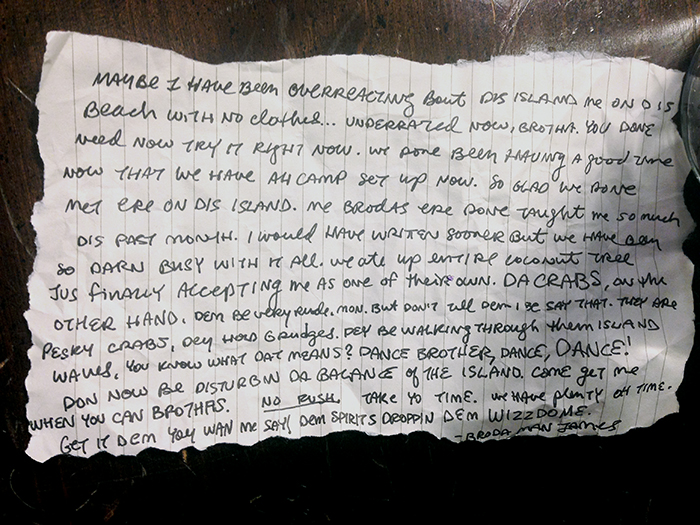 MAYBE I HAVE BEEN OVERREACTING BOUT DIS ISLAND ME ON DIS
BEACH WITH NO CLOTHES... UNDERRATED NOW, BROTHA. YOU DONE
NEED NOW TRY IT RIGHT NOW. WE DONE BEEN HAVING A GOOD TIME
NOW THAT WE HAVE AH CAMP SET UP NOW. SO GLAD WE DONE
MET ERE ON DIS ISLAND. ME BRODAS ERE DONE TAUGHT ME SO MUCH
DIS PAST MONTH. I WOULD HAVE WRITEN SOONER BUT WE HAVE BEEN
SO DARN BUSY WITH IT ALL. WE ATE UP ENTIRE COCONUT TREE
JUS FINALLY ACCEPTING ME AS ONE OF THEIR OWN. DA CRABS, ON THE
OTHER HAND, DEM BE VERY RUDE, MON. BUT DON'T TELL DEM I BE SAY THAT. THEY ARE
PESKY CRABS, DEY HOLD GRUDGES. DEY BE WALKING THROUGH THEM ISLAND
WAVES, YOU KNOW WHAT DAT MEANS? DANCE BROTHER, DANCE, DANCE!
DON NOW BE DISTURBIN DA BALANCE OF THE ISLAND. COME GET ME
WHEN YOU CAN BROTHAS. NO RUSH. TAKE YO TIME. WE HAVE PLENTY OH TIME.
GET IT DEM YOU WAN ME SAY? DEM SPIRITS DROPPIN DEM WIZZDOME.
-BRODA MAN JAMES